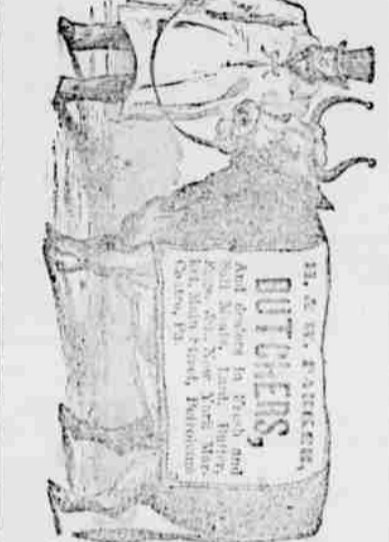 BUTCHERS,
And dealers in Fresh and
Salt Meats, Lard, Butter,
New York Mar-
ket, Main Street, Petroleum
Centre, Pa